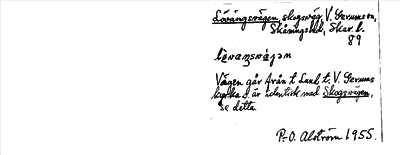 Lövängsvägen, skogsväg, V. Gerums sn,
Skåningshd, Skar. l.
89
Vägen går från t. Lund t. V. Gerums
kyrka o. är identisk med Skogsvägen,
se detta.
P.-O. Alström 1955.